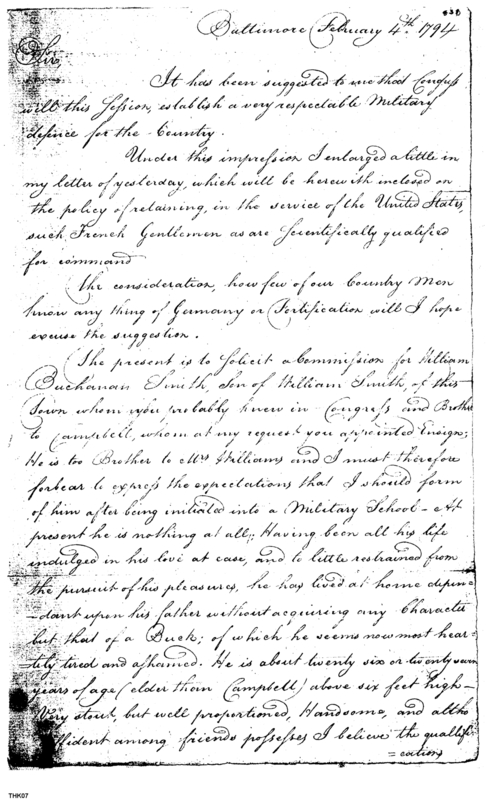 Baltimore February 4th. 1794
Sir,
It has been suggested to me that Congress
will this Session, establish a very respectable Military
defince for the Country.
Under this impression I enlarged a little in
my letter of yesterday, which will be herewith inclosed on
the policy of retaining, in the service of the United States,
such French Gentlemen as are Scientifically qualified
for command
The consideration, how few of our Country Men
know any thing of Germany or Fortification will I hope
excuse the suggestion.
The present is to solicit a Commission for William
Buchanan Smith, Son of William Smith, of this
Town whom you probably knew in Congress and Brother
to Campbell, whom at my request you appointed Ensign;
He is too Brother to Mrs Williams and I must therefore
forbear to express the expectations that I should form
of him after being initiated into a Military School – At
present he is nothing at all; Having been all his life
indulged in his love at case, and to little restrained from
the pursuit of his pleasures, he has lived at home depen=
=dant upon his father without acquiring any Character
but that of a Buck; of which he seems now most hear-
tily tired and ashamed. He is about twenty six or twenty seven
years of age (elder than Campbell) above six feet high –
Very stout, but well proportioned, Handsome, and altho
diffident among friends possesses I believe the qualifi-
=cations
THK07